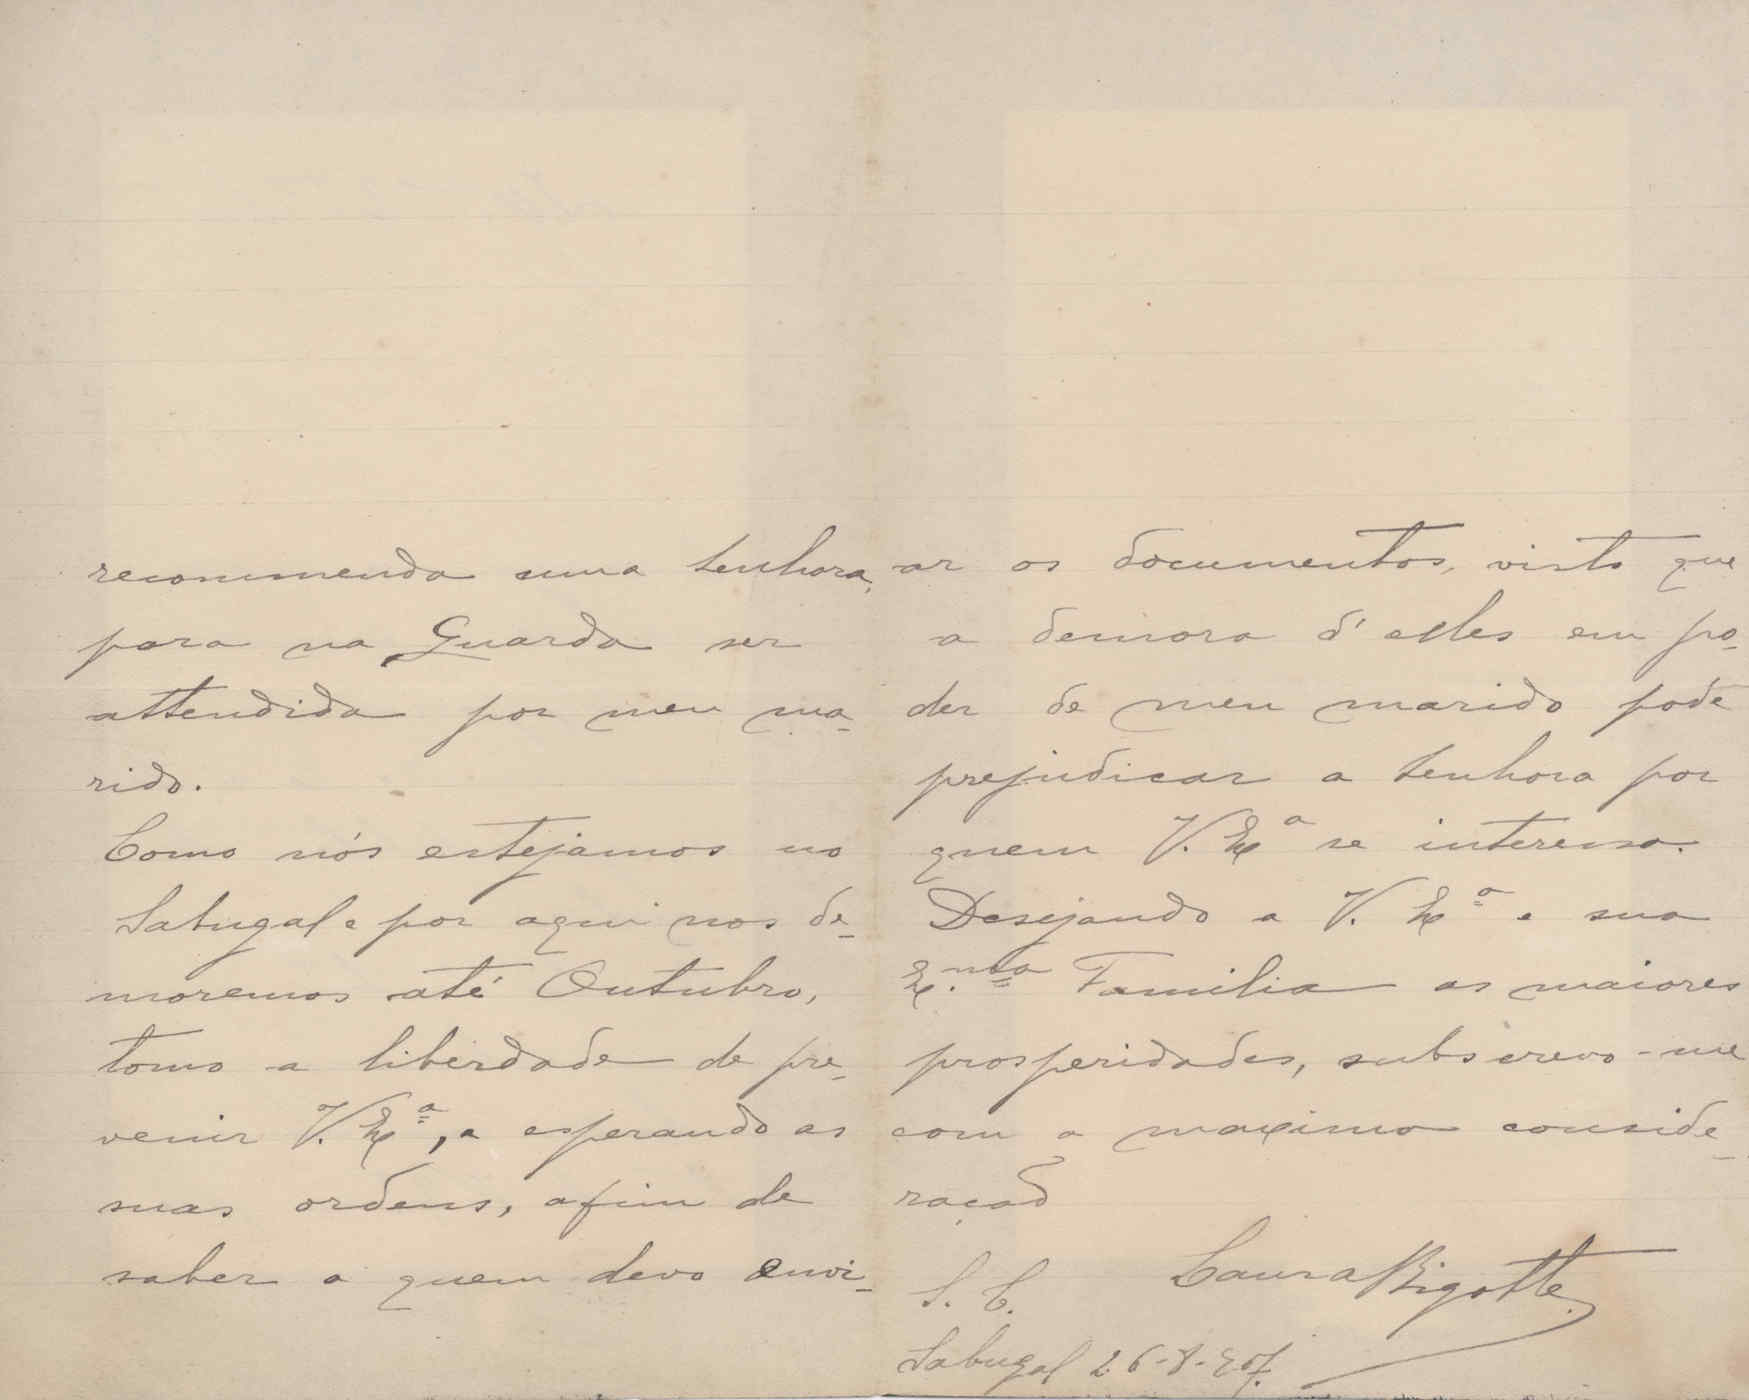 recommenda uma senhora,
para na Guarda ser
attendida por meu ma-
rido.
Como nós estejamos no
Sabugal e por aqui nos de-
moremos até Outubro,
tomo a liberdade de pre-
venir V. Exª, e esperando as
suas ordens, afim de
saber a quem devo envi-
ar os documentos, visto que
a demora d'elles em po-
der de meu marido pode
prejudicar a senhora por
quem V. Exª se interessa.
Desejando a V. Exª e sua
Ex.ma Familia as maiores
prosperidades, subscrevo-me
com a maxima conside-
ração
S. C. Laura Bigotte
Sabugal 26-8-